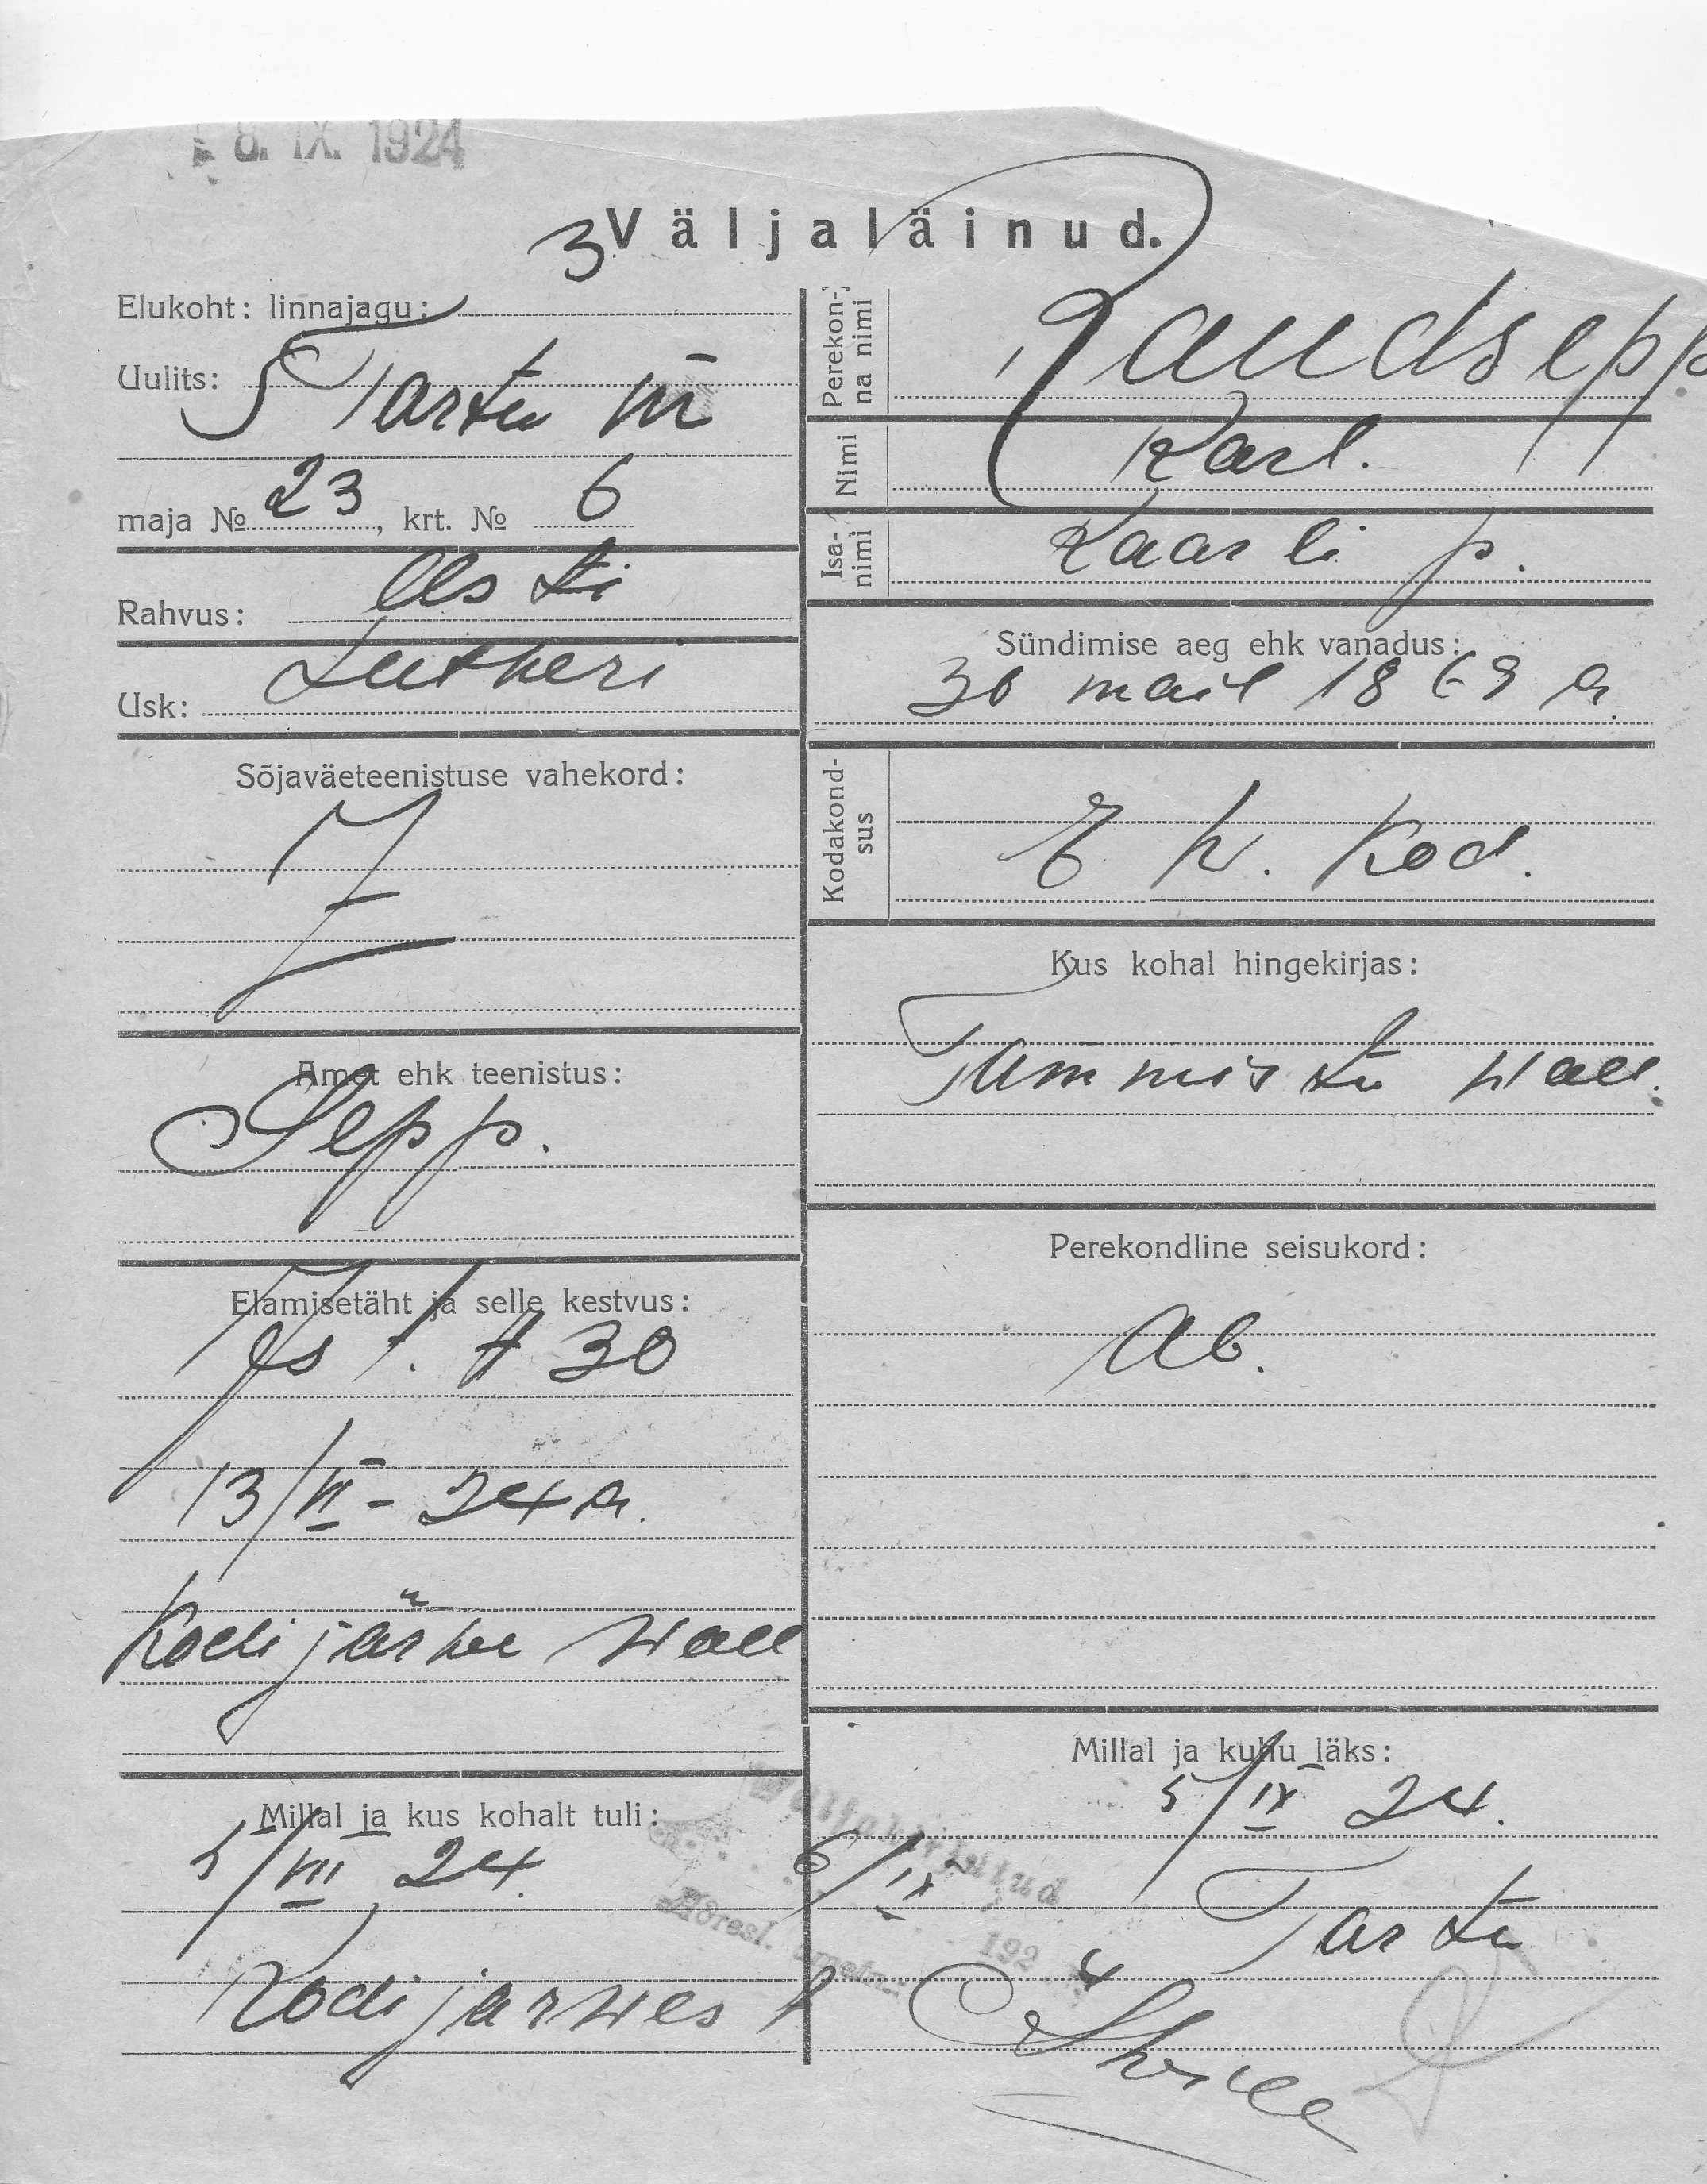 8. IX. 1924
3
Väljaläinud.
Elukoht: linnajagu:
Uulits: S Tartu m
maja № 23, krt. № 6
Rahvus: Eesti
Usk: Lutheri
Sõjaväeteenistuse vahekord:
Amet ehk teenistus:
Sepp.
Elamisetäht ja selle kestvus:
30
13/VI - 24 a.
Kodijärve wall
Millal ja kus kohalt tuli:
5/VIII 24.
Kodijarwest
Perekonna nimi
Raudsepp
Nimi
Karl.
Isanimi
Kaarli p.
Sündimise aeg ehk vanadus:
30 mail 1869 a.
Kodakondsus
E w. Kod.
Kus kohal hingekirjas:
Tammistu wall.
Perekondline seisukord:
Ab.
Millal ja kuhu läks:
5/IX 24.
Tartu
Wäljakirjutud
6/IX 1924